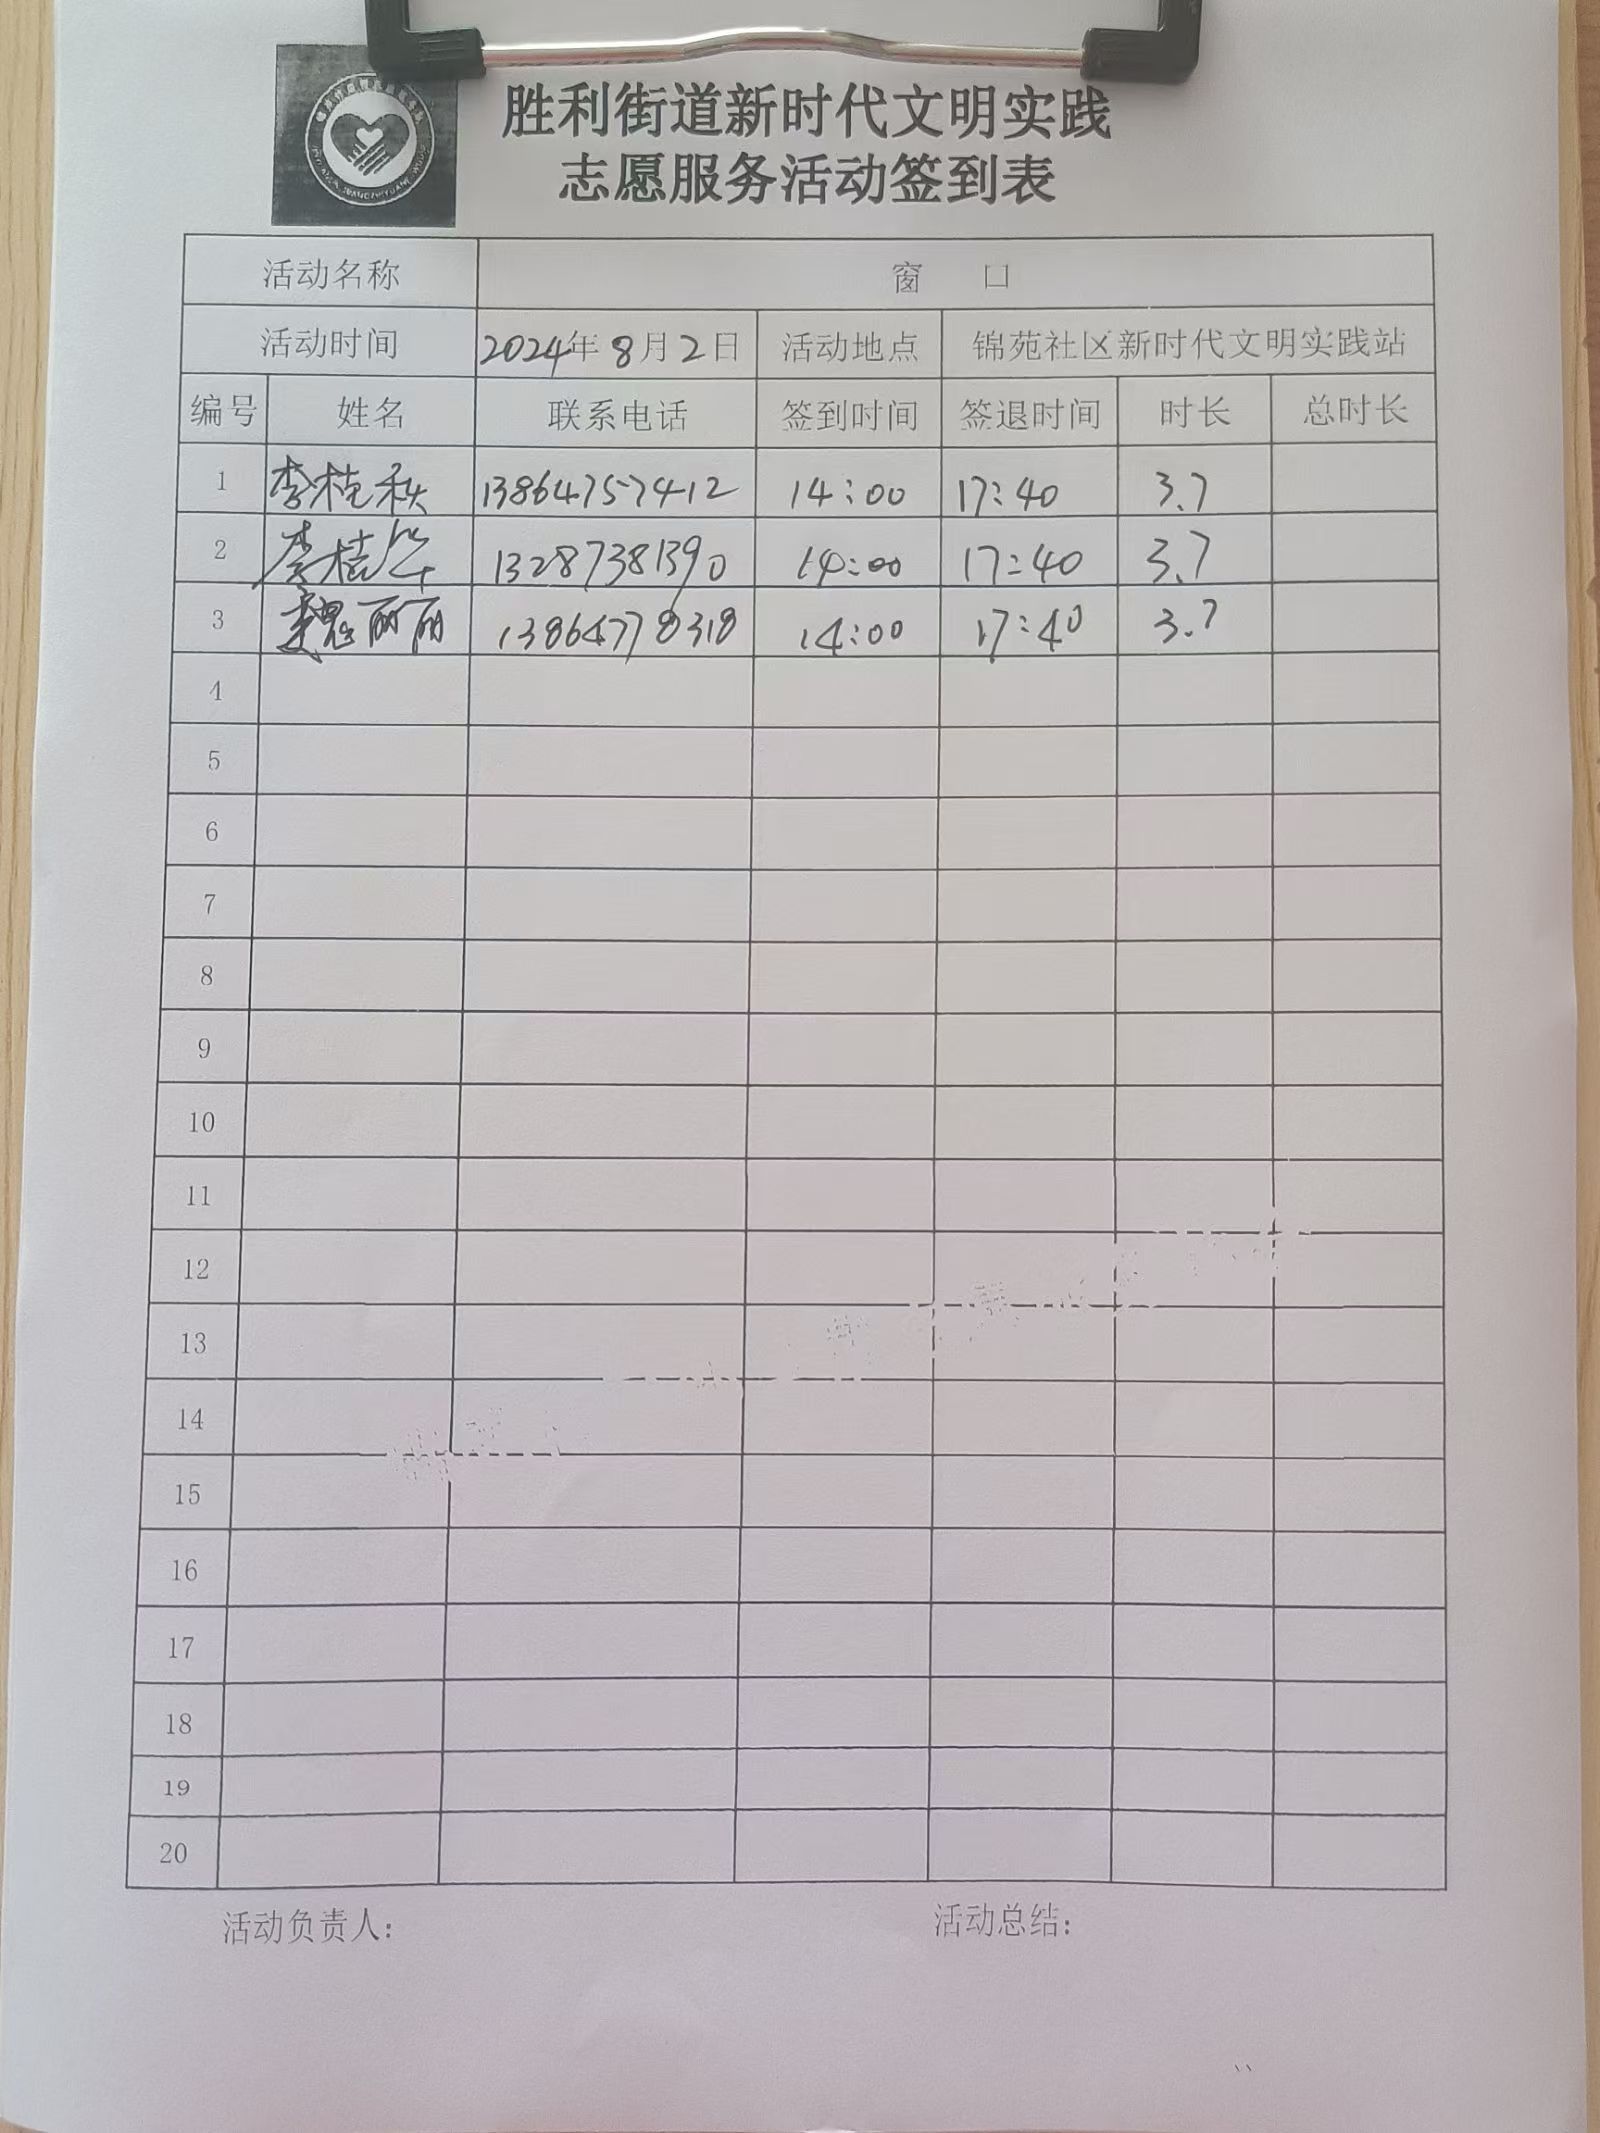 胜利街道新时代文明实践
志愿服务活动签到表
活动名称 窗 口
活动时间 2024年8月2日 活动地点 锦苑社区新时代文明实践站
编号 姓名 联系电话 签到时间 签退时间 时长 总时长
1 李桂秋 13864757412 14:00 17:40 3.7
2 李桂华 13287381390 14:00 17:40 3.7
3 魏丽丽 13864778318 14:00 17:40 3.7
4
5
6
7
8
9
10
11
12
13
14
15
16
17
18
19
20
活动负责人: 活动总结: